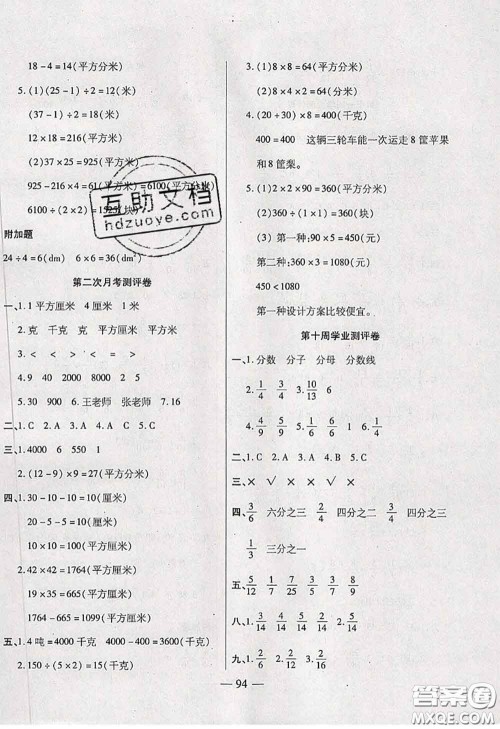 18-4=14(平方分米)
5. (1)(25-1)÷2=12(米)
(37-1)÷2=18(米)
12×18=216(平方米)
(2)37×25=925(平方米)
6100÷(2×2)=1525(块)
附加题
24÷4=6(dm) 6×6=36(dm²)
第二次月考测评卷
一、1. 平方厘米 4厘米 厘米
2. 克 千克 克 克 千克
3. < < > > <
4. 20 39 40 8 7
5. 30 900 6. 王老师 张老师 7. 16
二、1. C 2. A 3. A 4. C 5. C
三、1. 4000 6 550 1
2. (12-9)×9=27(平方分米)
四、1. 30-10-10=10(厘米)
20-5-5=10(厘米)
10×10=100(平方厘米)
2. 42×42=1764(平方厘米)
19×35=665(平方厘米)
1764-665=1099(平方厘米)
五、1. 4吨=4000千克 4000-400=3600(千克)
2. 150÷(5×2)=15(千克)
3. (1)8×8=64(平方分米)
(2)8×8×2=128(平方分米)
4. (20+30)×8=400(千克)
400=400 这辆三轮车能一次运走8筐苹果
和8筐梨。
5. (1)2×2×90=360(平方分米)
(2)360÷(1×1)=360(块)
(3)第一种:90×5=450(元)
第二种:360×3=1080(元)
450<1080
第一种设计方案比较便宜。
第十周学业测评卷
一、1. 分数 分子 分母 分数线
2. 1/4 3/4 3. 8 1/8 4. 1/30 6
5. 4/9 5/9 6. 1/5 1/6 7. 1/4
二、1. B 2. C 3. A 4. B 5. C
三、× √ × × ×
四、3/6 六分之三 2/4 四分之二 3/4 四分之三
1/3 三分之一
五、5/12 1/7 7/25 3/8 4/9
八、1. 3/14 2. 5/14 3. 6/14
九、1. 2/6 2. 2/12 3. 2/16
94
互助文档
hdzuoye.com
答案圈
MXQE.COM